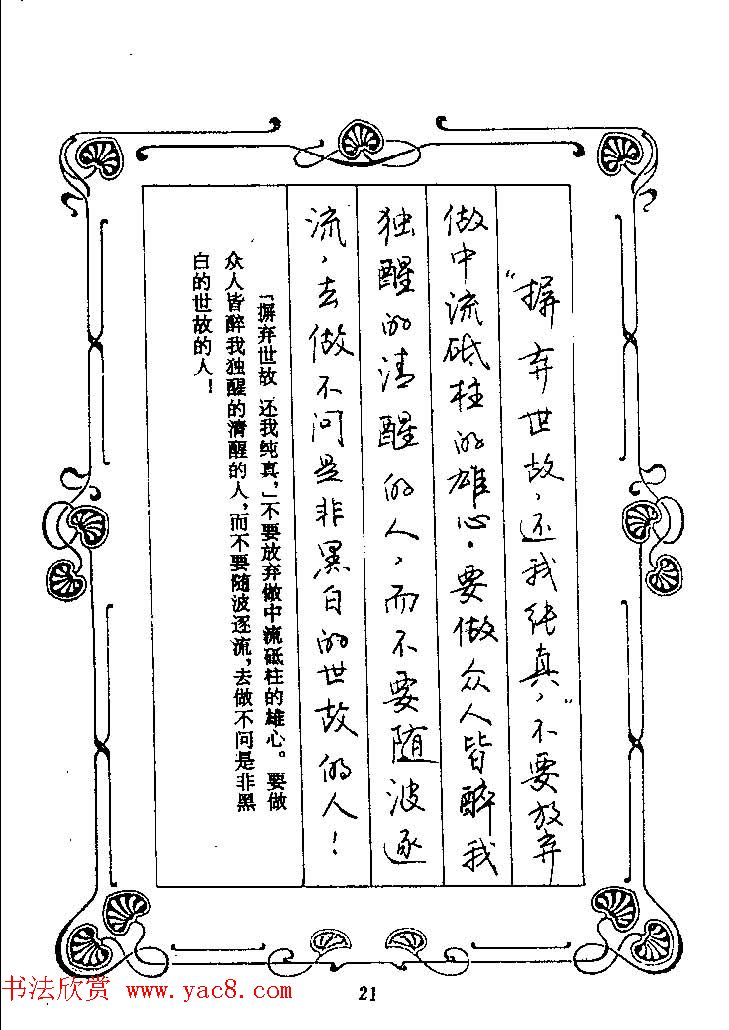 “摒弃世故，还我纯真，”不要放弃
做中流砥柱的雄心。要做众人皆醉我
独醒的清醒的人，而不要随波逐
流，去做不问是非黑白的世故的人！
「摒弃世故，还我纯真，」不要放弃做中流砥柱的雄心。要做
众人皆醉我独醒的清醒的人，而不要随波逐流，去做不问是非黑
白的世故的人！
书法欣赏 www.yac8.com
21